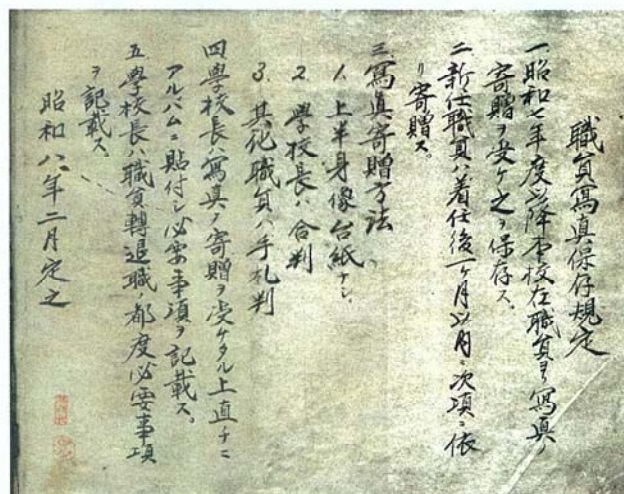 職員寫真保存規定
一、昭和七年度以降本校在職員ヨリ寫真ノ
寄贈ヲ受ケ之ヲ保存ス、
二、新任職員ハ着任後一ケ月以内ニ次項ニ依
リ寄贈ス。
三、寫真寄贈方法、
1. 上半身像台紙ナシ、
2. 學校長ハ合判
3. 其他職員ハ手札判
四、學校長ハ寫真ノ寄贈ヲ受ケタル上直チニ
アルバムニ貼付シ必要事項ヲ記載ス。
五、學校長ハ職員轉退職ノ都度必要事項
ヲ記載ス。
昭和八年二月定之